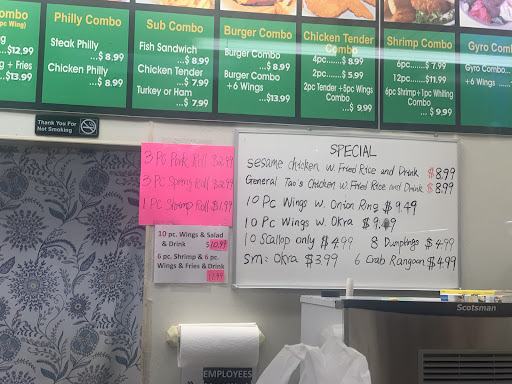 ombo
pc Wing)
$12.99
g + Fries
$13.99
Philly Combo
Steak Philly
$ 8.99
Chicken Philly
$ 8.99
Sub Combo
Fish Sandwich
$ 8.99
Chicken Tender
$ 7.99
Turkey or Ham
$ 7.99
Burger Combo
Burger Combo
$ 8.99
Burger Combo
+6 Wings
...$13.99
Chicken Tender
Combo
4pc......$ 8.99
2pc......$ 5.99
2pc Tender +6pc Wings
Combo
$ 9.99
Shrimp Combo
6pc......$ 7.99
12pc.....$11.99
6pc Shrimp+1pc Whiting
Combo
$ 9.99
Gyro Com
Gyro Combo
+6 Wings
Thank You For
Not Smoking
3 Pc Pork Roll $2.99
3 Pc Spring Roll $2.99
1 Pc Shrimp Roll $1.99
10 pc. Wings & Salad
& Drink $10.99
6 pc. Shrimp & 6 pc.
Wings & Fries & Drink
SPECIAL
sesame chicken w. Fried Rice and Drink $8.99
General Tao's Chicken w. Fried Rice and Drink $8.99
10 Pc Wings w. Onion Ring $9.49
10 Pc Wings w. Okra $9.49
10 Scallop only $4.99 8 Dumplings $4.99
sm: Okra $3.99 6 Crab Rangoon $4.99
Scotsman
EMPLOYEES